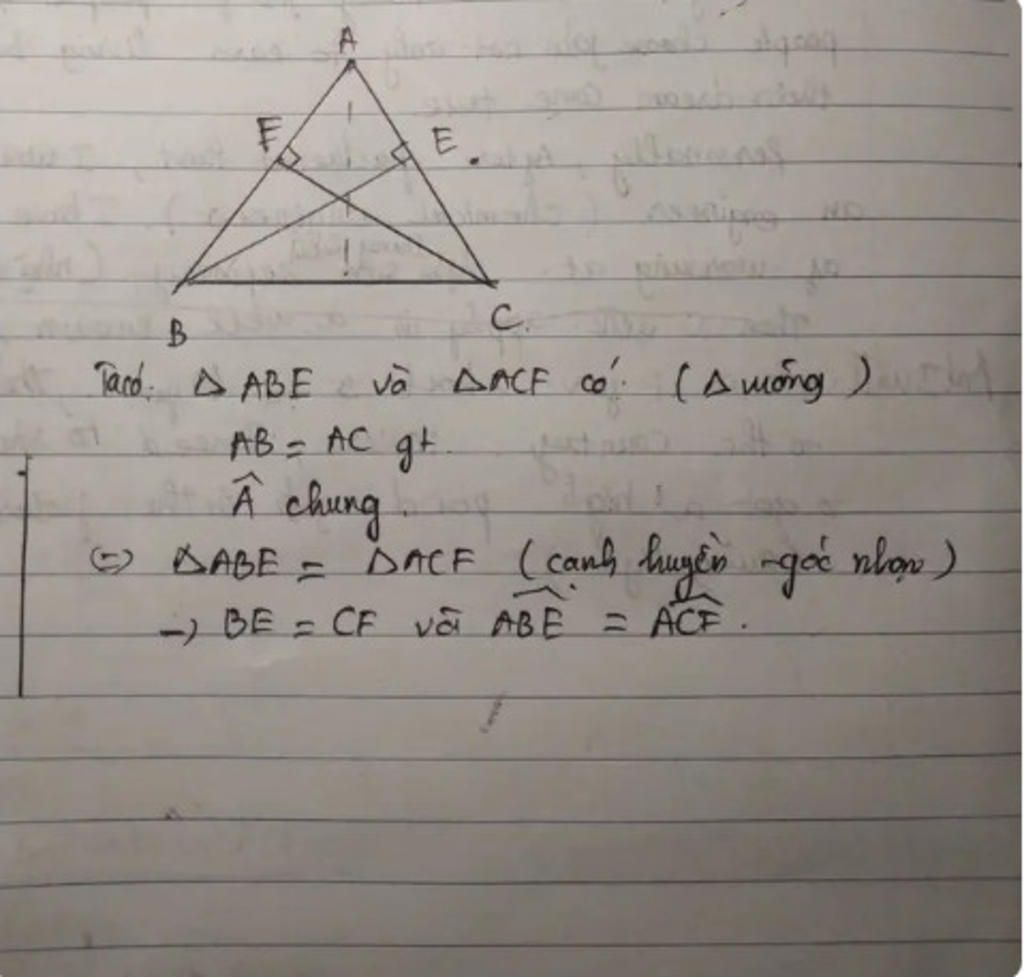 A
F E
B C.
Ta có: Δ ABE và ΔACF có: (Δ vuông)
AB = AC gt.
Â chung.
(=) ΔABE = ΔACF (cạnh huyền - góc nhọn)
→ BE = CF và ABE = ACF.